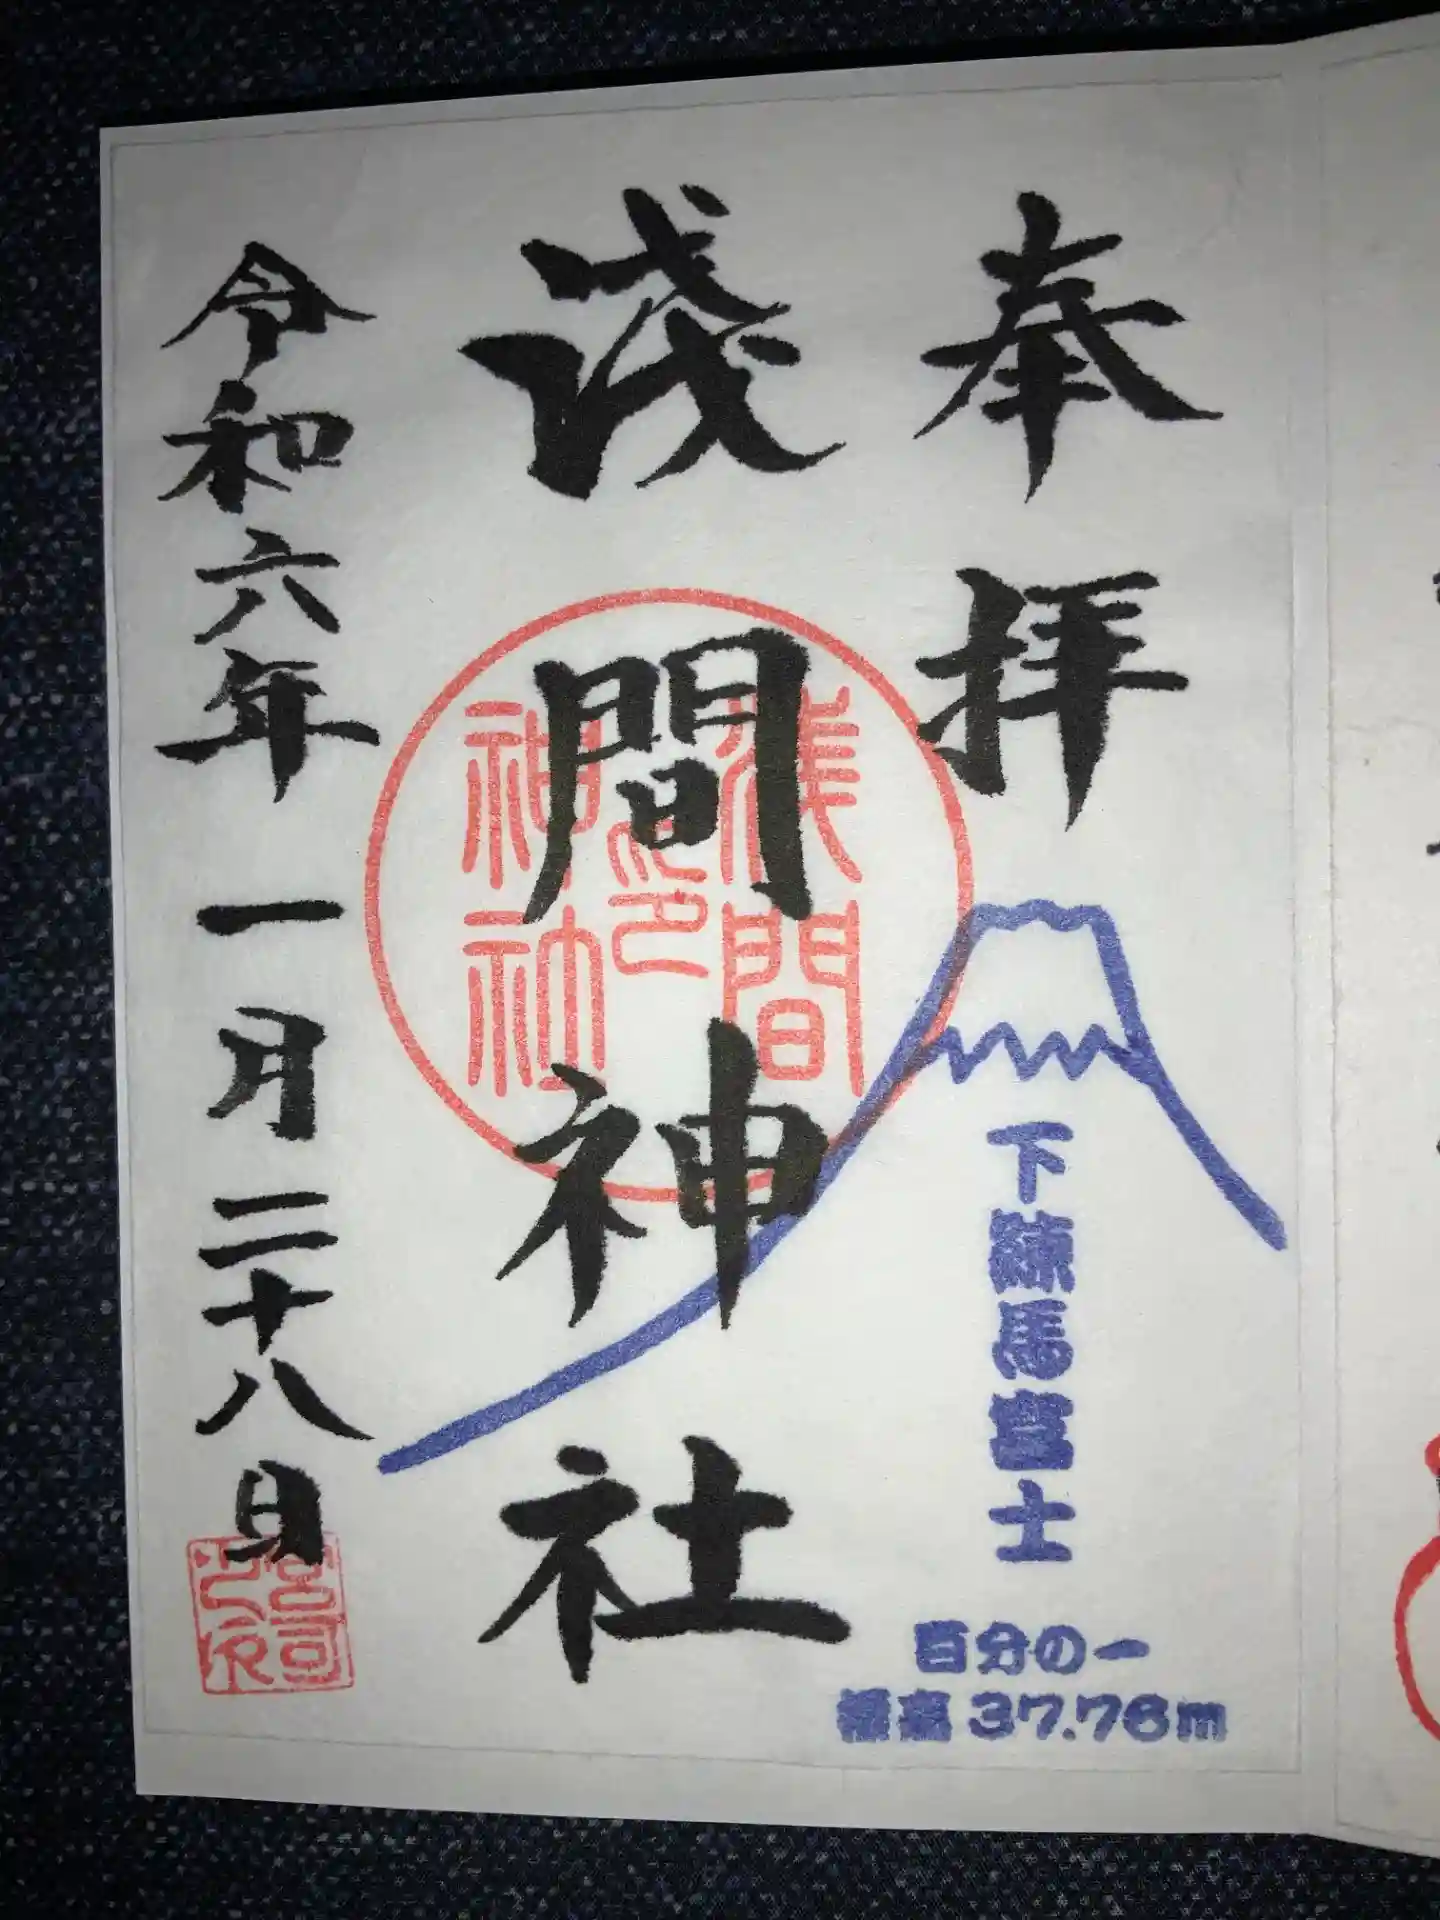 奉拝
淺間神社
令和六年一月二十八日
浅間
神社
之印
下練馬富士
百分の一
標高37.76m
宮司
之印